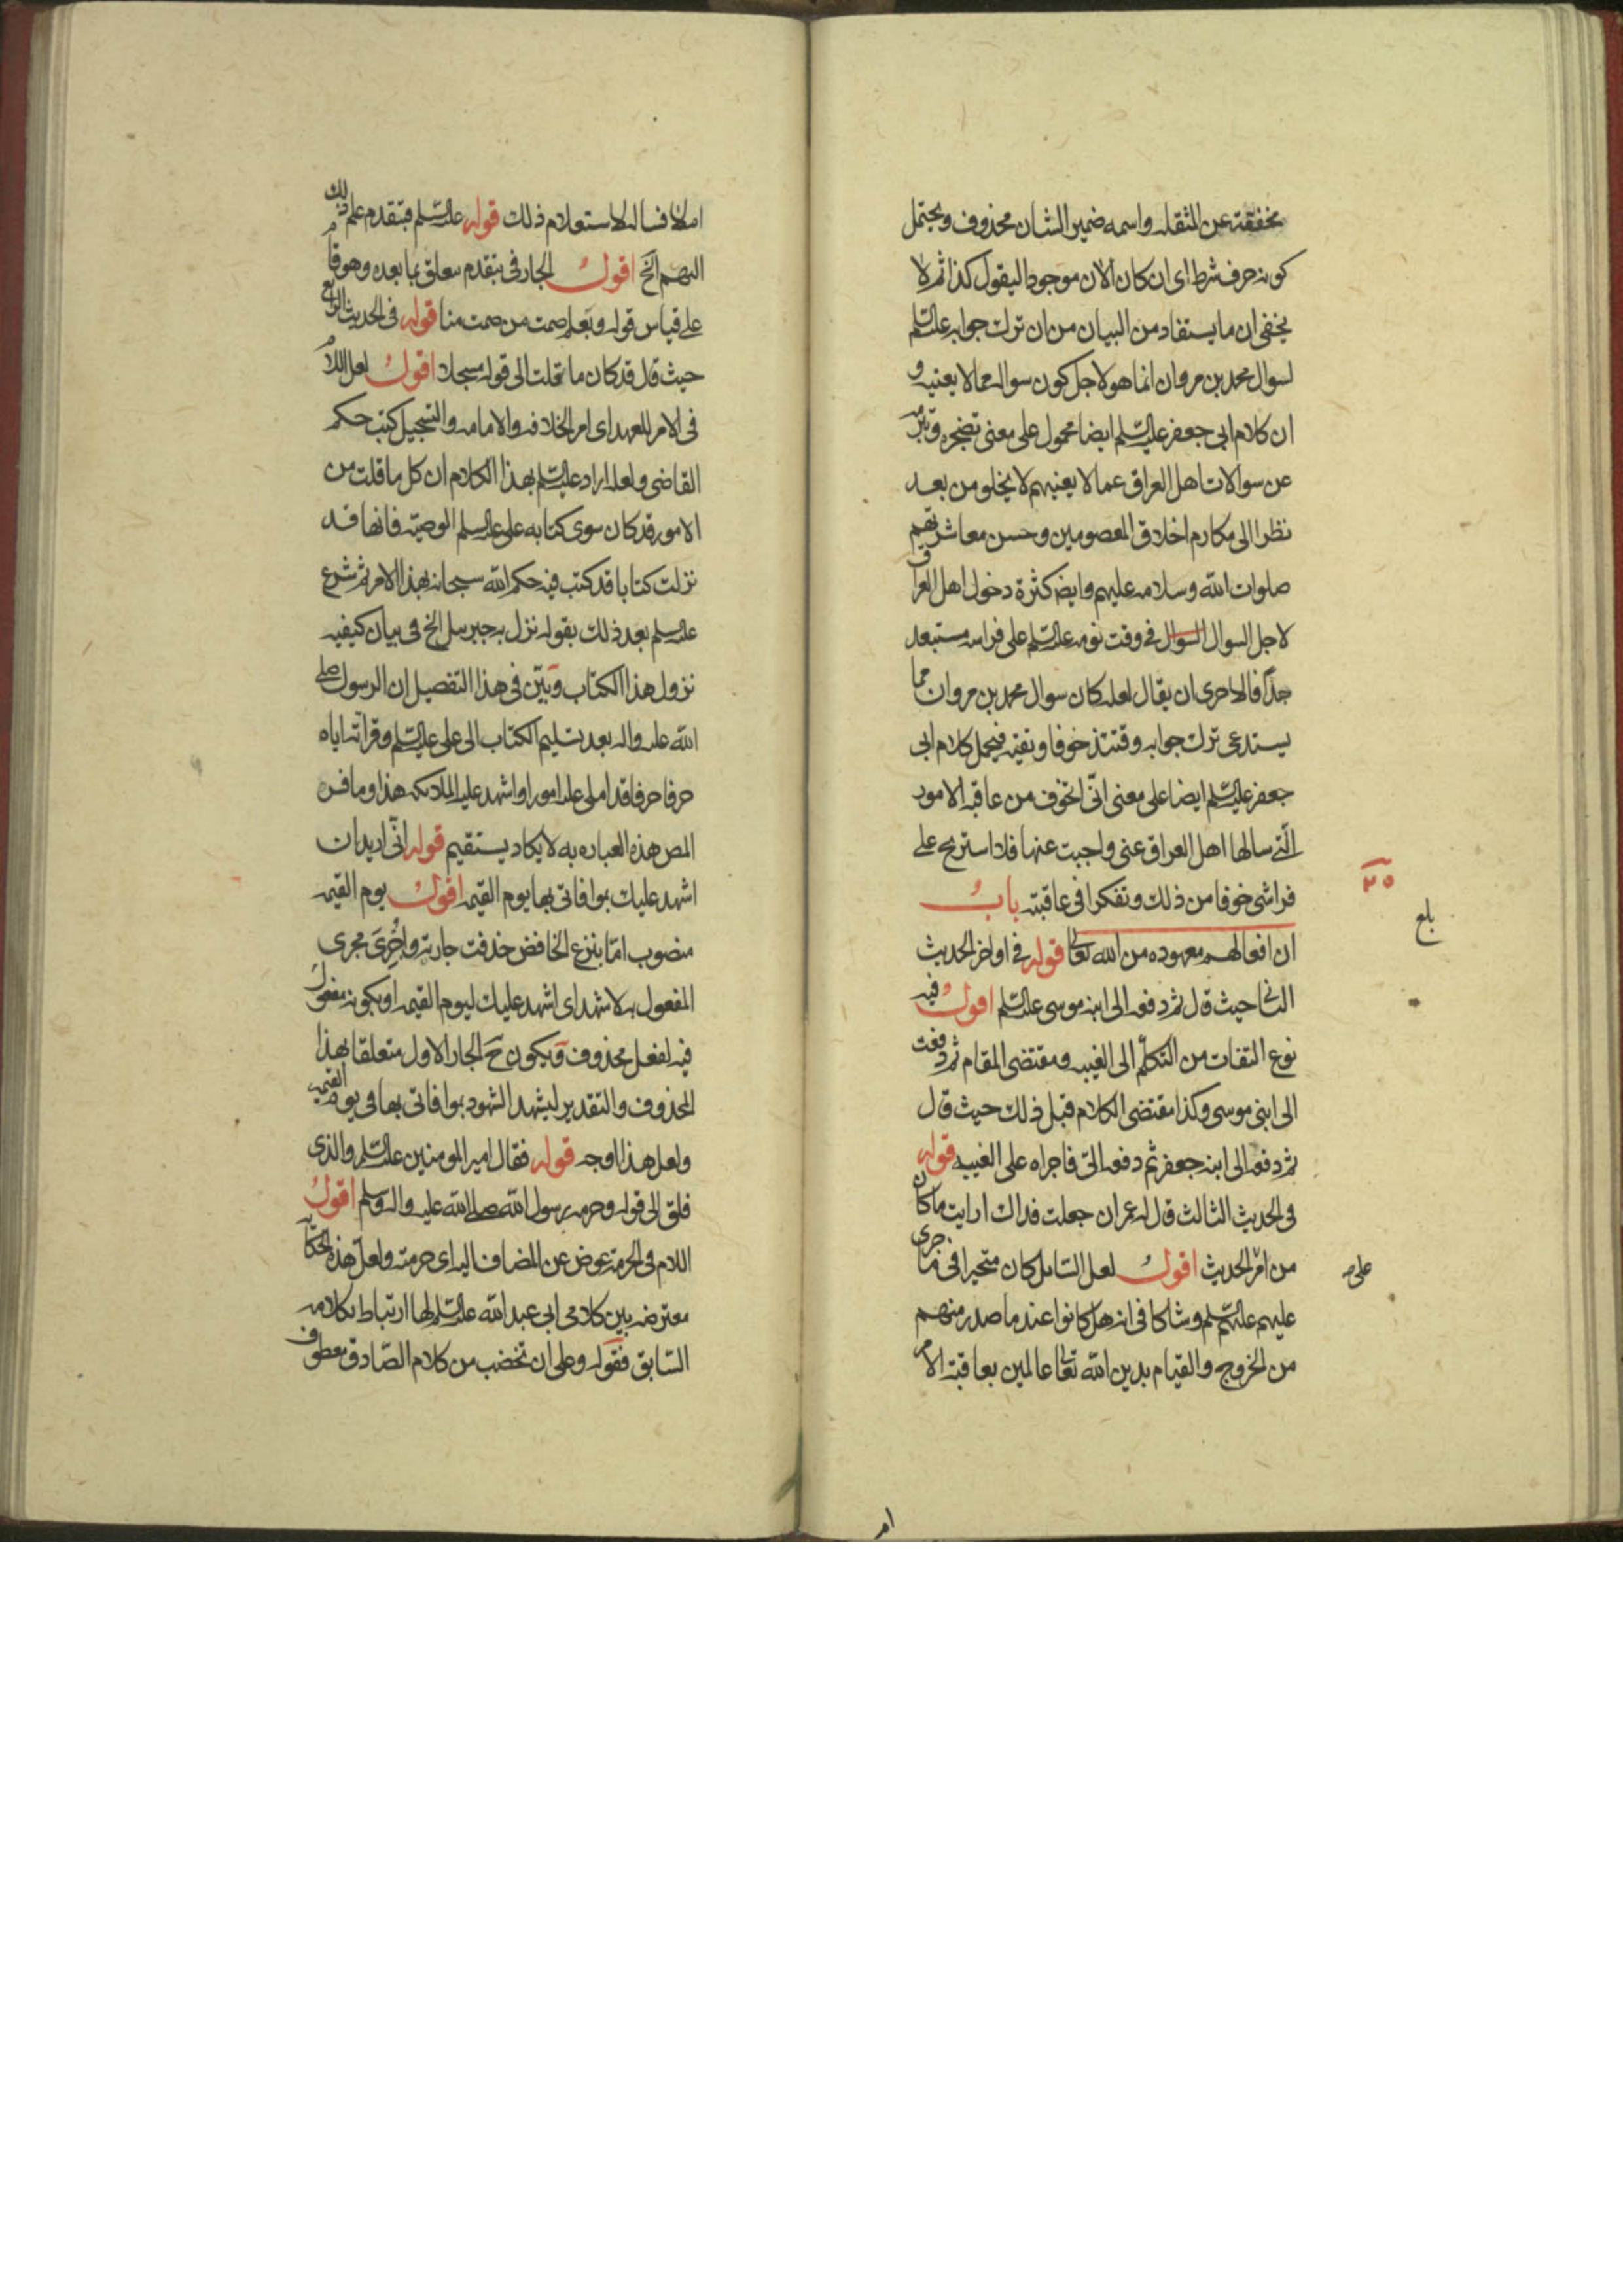 مخففة عن المثقله واسمه ضمير الشان محذوف ويحتمل
كونه حرف شرط اى ان كان الان موجودا ليقول كذا ثم لا
يخفى ان ما يستفاد من البيان من ان ترك جوابه علیه السّلم
لسوال محمد بن مروان انما هو لاجل كون سواله مما لا يعنيه و
ان كلام ابى جعفر عليه السّلم ايضا محمول على معنى تضجره وتبرمه
عن سوالات اهل العراق عما لا يعنيهم لا يخلو من بعد
نظرا الى مكارم اخلاق المعصومين وحسن معاشرتهم
صلوات الله وسلامه عليهم وايضا كثرة دخول اهل العراق
لاجل السوال السوال فى وقت نومه علیه السّلم على فراشه مستبعد
جدّاً فالاحرى ان يقال لعله كان سوال محمد بن مروان مما
يستدعى ترك جوابه وقتئذ خوفا وتقيه فيحمل كلام ابى
جعفر عليه السّلم ايضا على معنى انّى اتخوف من عاقبه الامور
الّتى سالها اهل العراق عنى واجبت عنها فلا استريح على
فراشى خوفا من ذلك وتفكرا فى عاقبته باب
٢٥
بلغ
ان افعالهم معهوده من الله تعالى قوله فى اواخر الحديث
الثانى حيث قال ثم دفعه الى ابنه موسى علیه السّلم اقول وفيه
نوع التفات من التكلّم الى الغيبه ومقتضى المقام ثم دفعت
الى ابنى موسى وكذا مقتضى الكلام قبل ذلك حيث قال
ثم دفعه الى ابنه جعفر ثم دفعه الىّ فاجراه على الغيبه قوله
فى الحديث الثالث قال له حمران جعلت فداك ارايت ما كان
من امر الحديث اقول لعل السائل كان متحيرا فى ما جرى
على
عليهم علیهم السّلم وشاكا فى انه هل كانوا عند ما صدر منهم
من الخروج والقيام بدين الله تعالى عالمين بعاقبة الامر
ام
ام لا فساله لاستعلام ذلك قوله علیه السّلم فبتقدم علم ذلك
اليهم الخ اقول الجار فى بتقدم متعلق بما بعده وهو قام
على قياس قوله وبعلم صمت من صمت منا قوله فى الحديث الرابع
حيث قال قد كان ما قلت الى قوله مسجلا اقول لعل اللام
فى الامر للعهد اى امر الخلافه والامامه والتسجيل كتب حكم
القاضى ولعله اراد علیه السّلم بهذا الكلام ان كل ما قلت من
الامور قد كان سوى كتابه على علیه السلم الوصيّه فانها قد
نزلت كتابا قد كتب فيه حكم الله سبحانه بهذا الامر ثم شرع
علیه السلم بعد ذلك بقوله نزل به جبرئيل الخ فى بيان كيفيه
نزول هذا الكتاب وبيّن فى هذا التفصيل ان الرسول صلى
الله عليه واله بعد تسليم الكتاب الى على عليه السّلم وقراته اياه
حرفا حرفا قد املى عليه امورا واشهد عليه الملائكه هذا وما فسره
المص هذه العباره به لا يكاد يستقيم قوله انّى اريد ان
اشهد عليك بموافاتى بها يوم القيمه اقول يوم القيمه
منصوب امّا بنزع الخافض حذفت جارته واُجْرِىَ مجرى
المفعول به لاشهد اى اشهد عليك ليوم القيمه او بكونه مفعول
فيه لفعل محذوف ويكون ح الجار الاول متعلقا بهذا
المحذوف والتقدير ليشهد الشهود بموافاتى بها فى يوم القيمه
ولعل هذا اوجه قوله فقال امير المومنين علیه السّلم والذى
فلق الى قوله وحرمه رسول الله صلى الله عليه واله وسلم اقول
اللام فى الحرمة عوض عن المضاف اليه اى حرمته ولعلّ هذه الحكاية
معترضه بين كلامى ابى عبد الله علیه السّلم لها ارتباط بكلامه
السّابق فقوله وعلى ان تخضب من كلام الصّادق معطوف